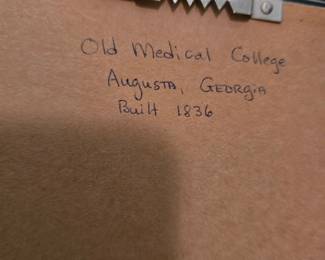 Old Medical College
Augusta, Georgia
Built 1836